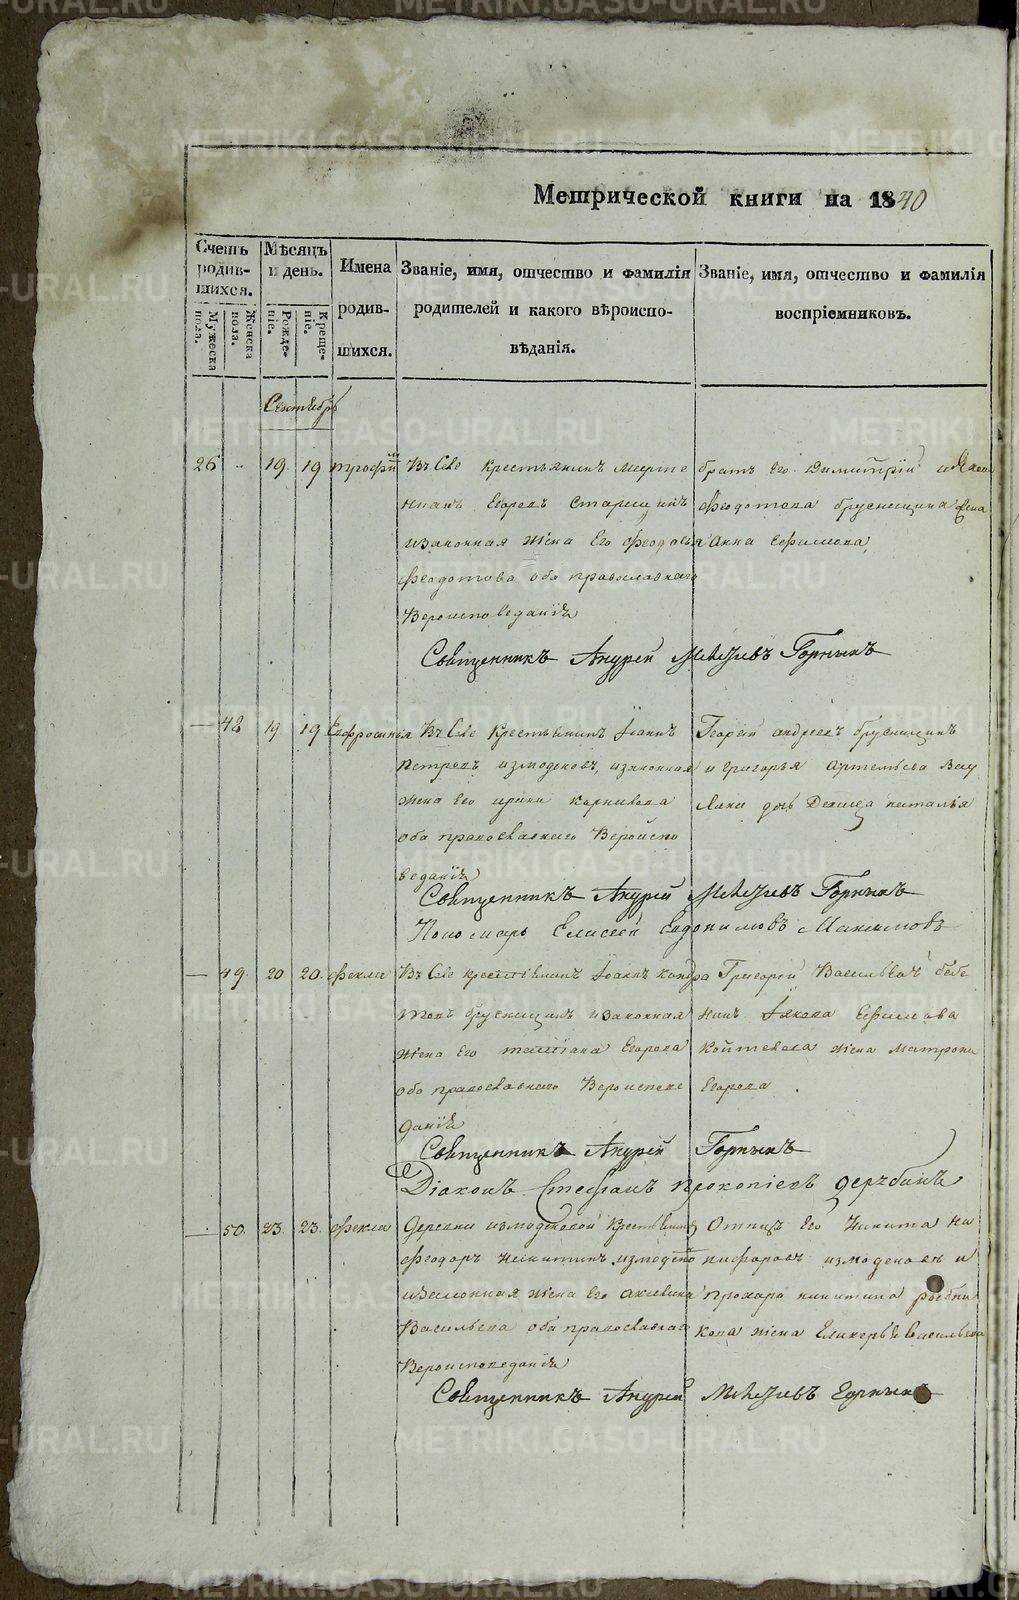 Метрической книги на 1840
Счетъ родившихся.
Мужеска пола.
Женска пола.
Мѣсяцъ и день.
Рожденіе.
Крещеніе.
Имена родившихся.
Званіе, имя, отчество и фамилія родителей и какого вѣроисповѣданія.
Званіе, имя, отчество и фамилія воспріемниковъ.
Сентябрь
26 " 19. 19 трофим
Въ Селе крестьянинъ
Егоръ Старицинъ
изаконная жена Его Феодосья
Феодотова оба православнаго
Вероисповеданія
братъ Его Димитрій
Феодотова брусницина жена
Анна Ефимова
Священникъ Андрей Горныхъ
— 48 19 19 Евфросинія
Въ Селе Крестьянинъ Іоаннъ
Петровъ измоденовъ, изаконная
жена Его ирина карнилова
оба православнаго Вероиспо
веданія
Георгій андреевъ брусницинъ
и григорья Артемьева
дочь Девица наталья
Священникъ Андрей Горныхъ
Пономарь Елисей Максимовъ
— 49. 20 20. Фекла
Въ Селе крестьянинъ Іоаннъ кондра
товъ брусницинъ изаконная
жена Его татіана Егорова
оба православнаго Вероиспове
данія
Григорій Васильевъ бабе
нинъ Іякова Ефимова
жена Матрона
Егорова
Священникъ Андрей Горныхъ
Діаконъ Стефанъ Прокопіевъ дерябинъ
50. 23. 23. Фекла
Деревни измоденовой Крестьянинъ
Феодоръ Никитинъ измодено
изаконная жена Его
Васильева оба православнаго
Вероисповеданія
Отецъ Его Никита Ни
кифоровъ измоденовъ и
Прохора никитина рябки
кова жена Гликерья Васильева
Священникъ Андрей Горныхъ
METRIKI.GASO-URAL.RU